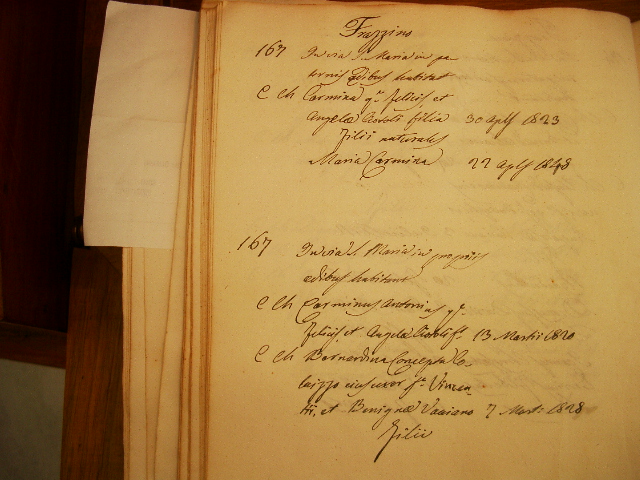 Frazzino
167 In via S. Maria in pa
ternis edibus habitant
C Ch Carmina q.m felicis, et
Angelæ filia 30 Aplis 1823
Filii naturales
Maria Carmina 22 Aplis 1848
167 In via S. Maria in propriis
edibus habitant
C Ch Carminus Antonius q.m
felicis et Angelæ 13 Martii 1820
C Ch Bernardina Concepta Co-
eius uxor f.a Vincen-
tii, et Benignæ 7 Martii 1828
Filii